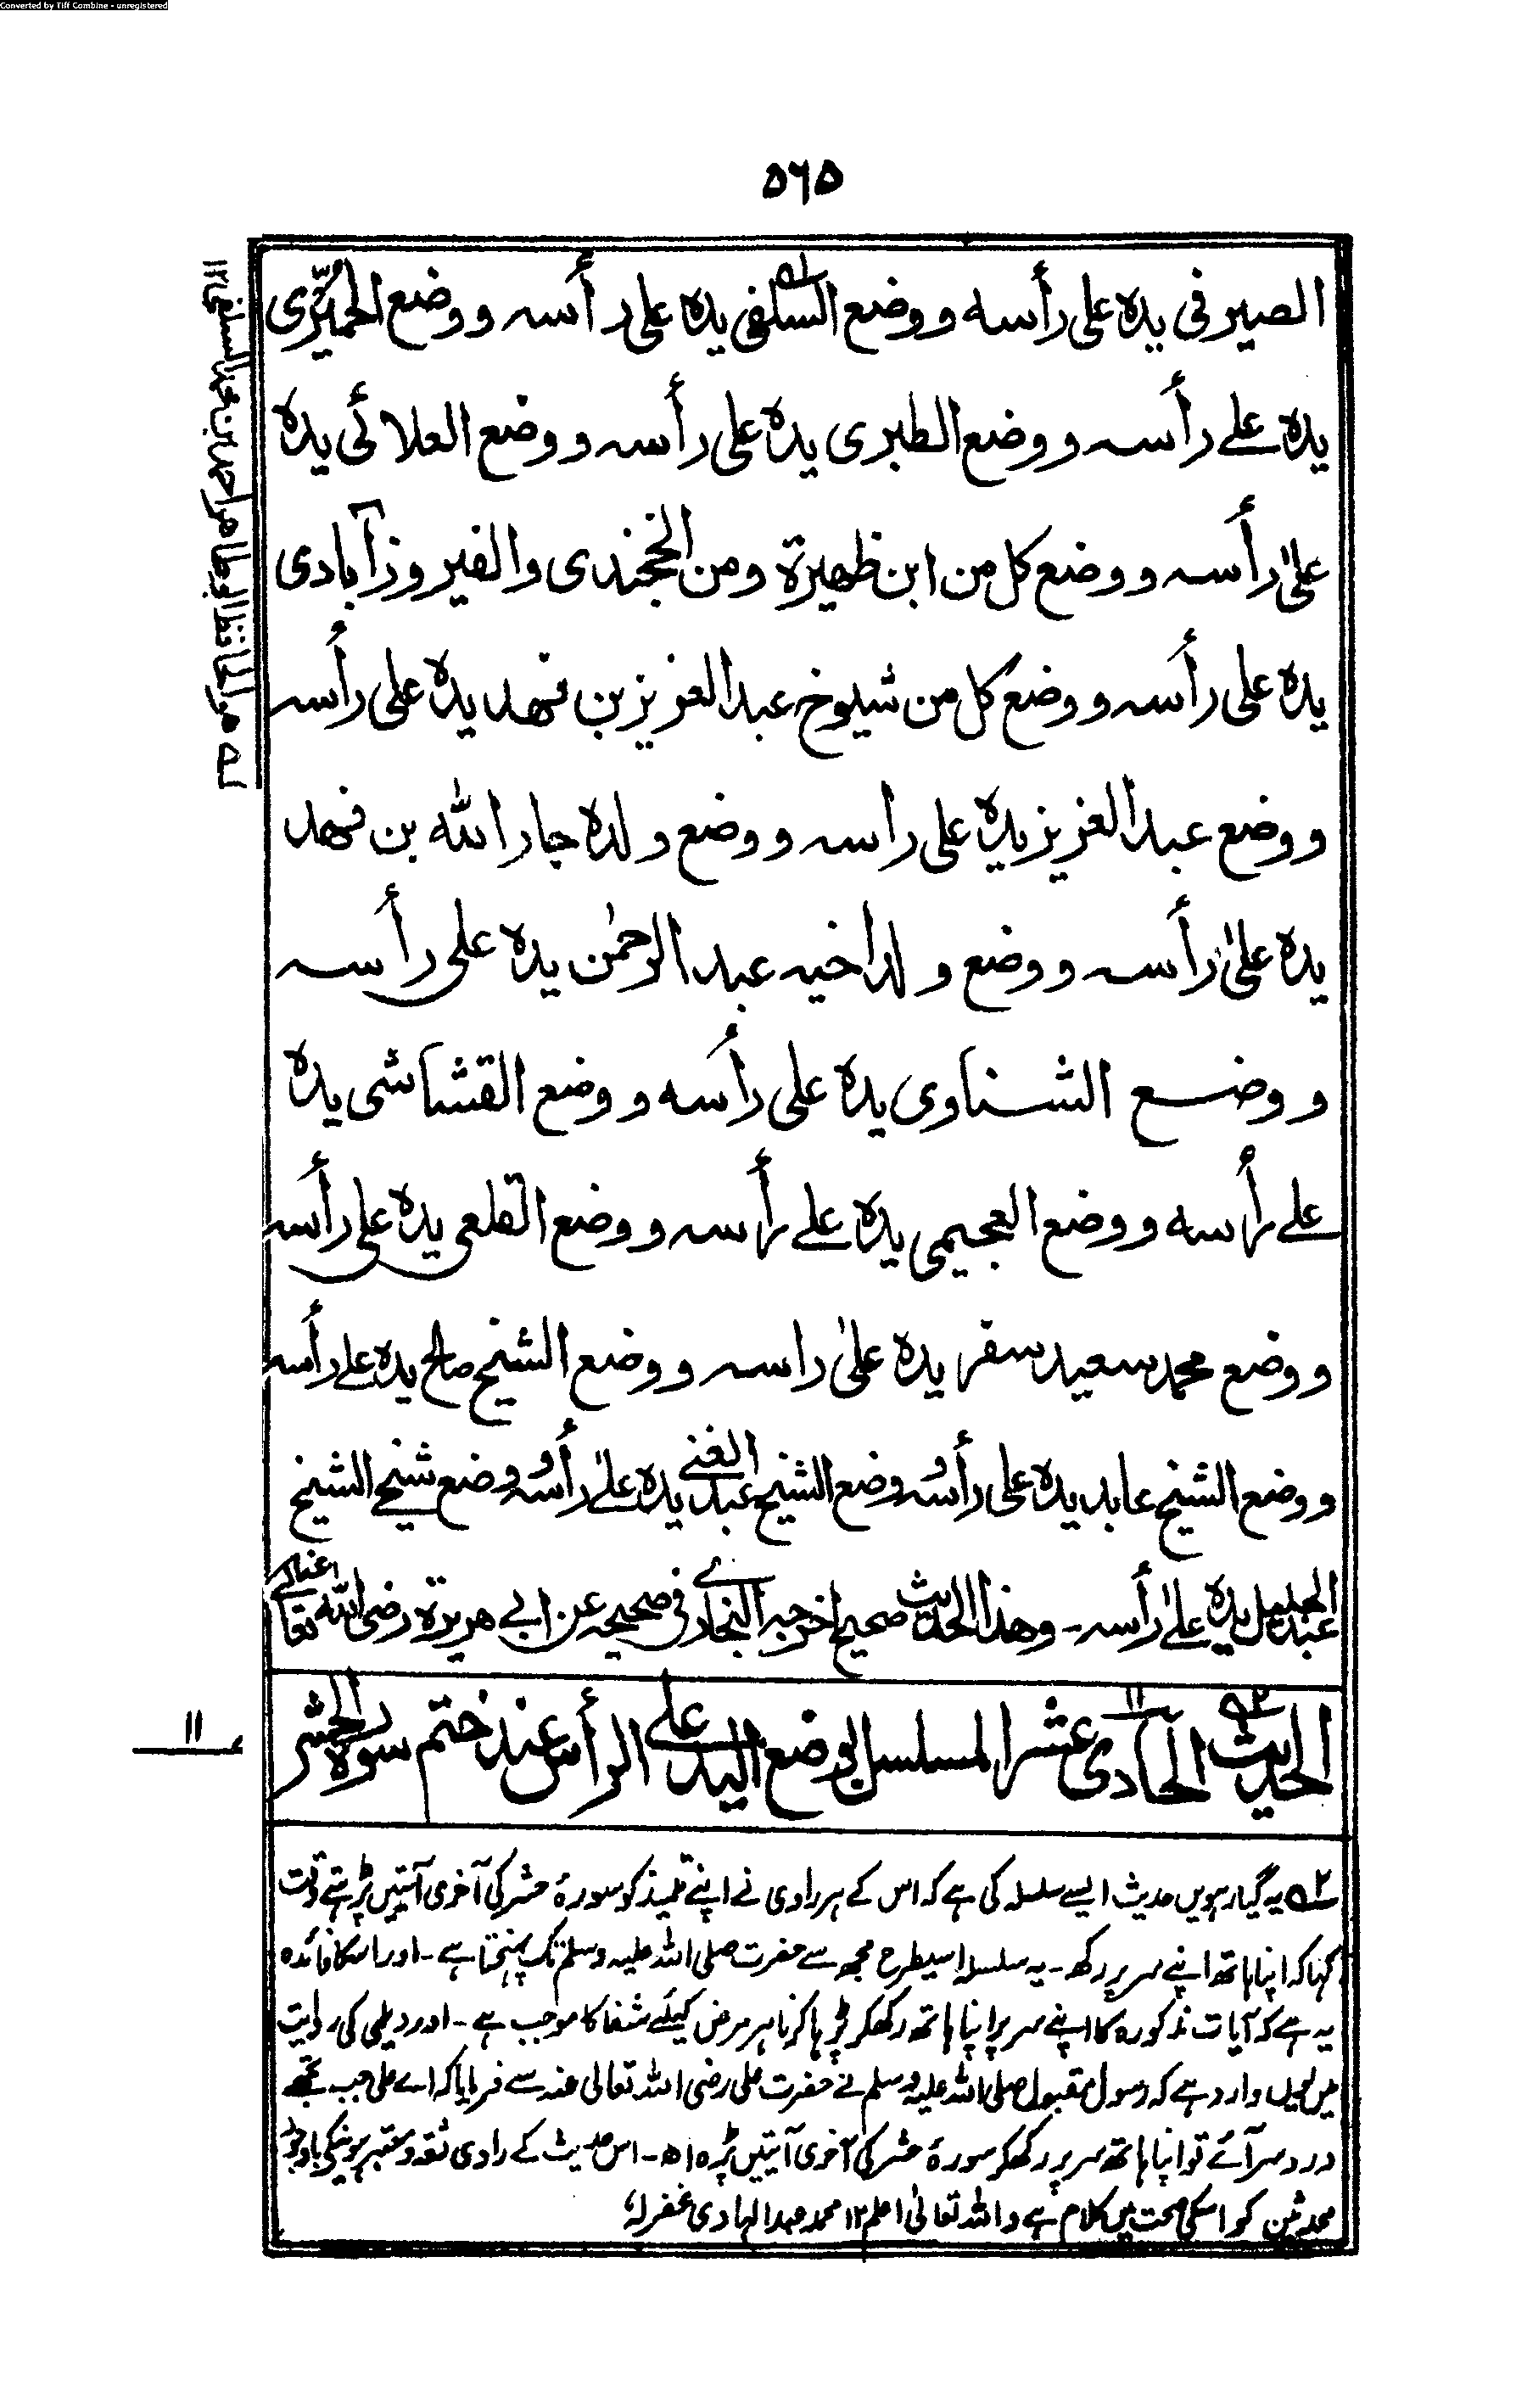 Converted by Tiff Combine - unregistered
۵۶۵
الصيرفى يده على رأسه ووضع السلفى يده على رأسه ووضع الحميّرى
يده علے رأسه ووضع الطبرى يده على رأسه ووضع العلائى يده
علىٰ رأسه ووضع كل من ابن ظهيرة ومن الخجندى والفيروزآبادى
يده على رأسه ووضع كل من شيوخ عبد العزيز بن فهد يده على رأسه
ووضع عبد العزيز يده على راسه ووضع ولده جار الله بن فهد
يده علىٰ رأسه ووضع ولد اخيه عبد الرحمٰن يده على رأسه
ووضع الشناوى يده على رأسه ووضع القشاشى يده
علے رأسه ووضع العجيمى يده علے رأسه ووضع القلعى يده على رأسه
ووضع محمد سعيد سفر يده علىٰ راسه ووضع الشيخ صالح يده علے رأسه
ووضع الشيخ عابد يده على رأسه ووضع الشيخ عبد الغنے يده علےٰ رأسه ووضع شيخے الشيخ
عبد الجليل يده علےٰ رأسه ـ وهذا الحديث صحيح اخرجه البخارے فى صحيحه عن ابے هريرة رضى الله تعالے
الحديث الحادى عشر المسلسل بوضع اليد علے الرأس عند ختم سورة الحشر
۱۱
۲ یہ گیارہویں حدیث ایسے سلسلہ کی ہے کہ اس کے ہر راوی نے اپنے تلمیذ کو سورۂ حشر کی آخری آیتیں پڑہتے وقت
کہا کہ اپنا ہاتھ اپنے سر پر رکھ ـ یہ سلسلہ اسیطرح مجھ سے حضرت صلی اللہ علیہ وسلم تک پہنچتا ہے ـ اور اسکا فائدہ
یہ ہے کہ آیات مذکورہ کا اپنے سر پر اپنا ہاتھ رکھکر پڑہا کرنا ہر مرض کیلئے شفا کا موجب ہے ـ اور دیلمی کی روایت
میں یوں وارد ہے کہ رسول مقبول صلی اللہ علیہ وسلم نے حضرت علی رضی اللہ تعالی عنہ سے فرمایا کہ اے علی جب تجھے
درد سر آئے تو اپنا ہاتھ سر پر رکھکر سورۂ حشر کی آخری آیتیں پڑہ اھ ـ اس حدیث کے راوی ثقہ و معتبر ہونیکی باوجود
محدثین کو اسکی صحت میں کلام ہے واللہ تعالیٰ اعلم ۱۲ محمد عبد الہادی غفرلہٗ
لہ هو الحافظ ابو طاهر احمد بن محمد السلفى ۱۲